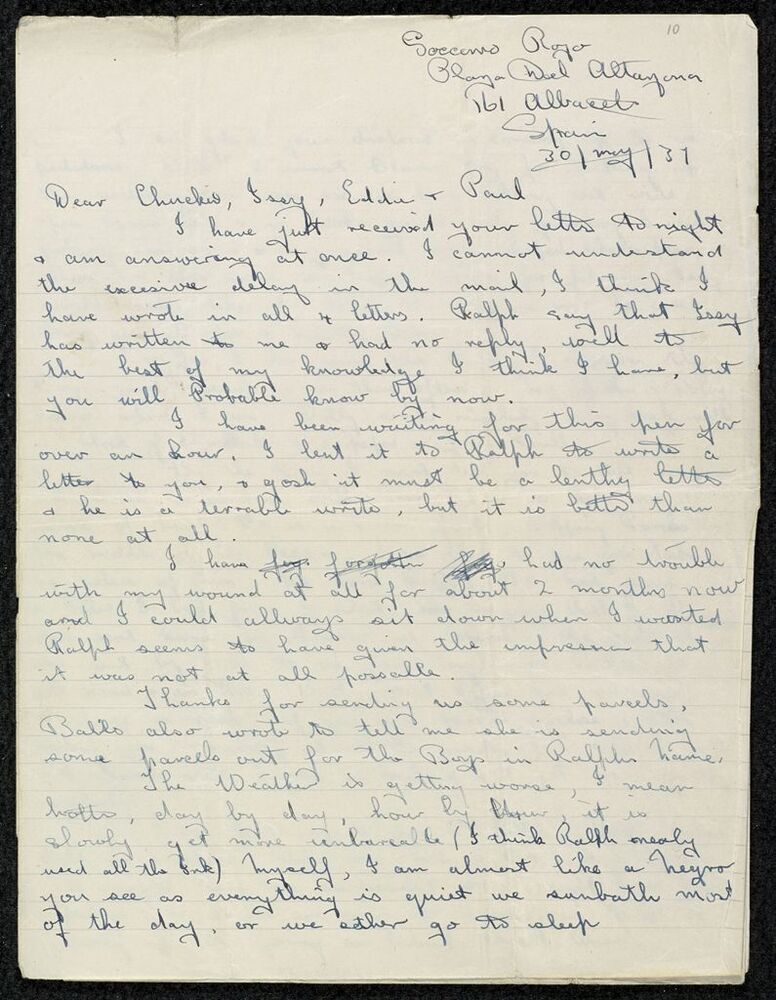 10
Soccorro Rojo
Plaza Del Altazona
161 Albacete
Spain
30/may/37
Dear Chuckie, Issy, Eddie + Paul
I have just received your letter to night
+ am answering at once. I cannot understand
the excesive delay in the mail, I think I
have wrote in all 4 letters. Ralph say that Issy
has written to me + had no reply, well to
the best of my knowledge I think I have, but
you will Probable know by now.
I have been waiting for this pen for
over an hour. I lent it to Ralph to write a
letter to you, + gosh it must be a lenthy letter
+ he is a terrable writer, but it is better than
none at all.
I have forgotten had no trouble
with my wound at all for about 2 months now
and I could allways sit down when I wanted
Ralph seems to have given the impression that
it was not at all possable.
Thanks for sending us some parcels,
also wrote to tell me she is sending
some parcels out for the Boys in Ralphs name.
The Weather is getting worse, I mean
hotter, day by day, hour by hour, it is
slowly get more unbareable (I think Ralph nearly
used all the Ink) Myself, I am almost like a Negro
you see as everything is quiet we sunbath most
of the day, or we either go to sleep